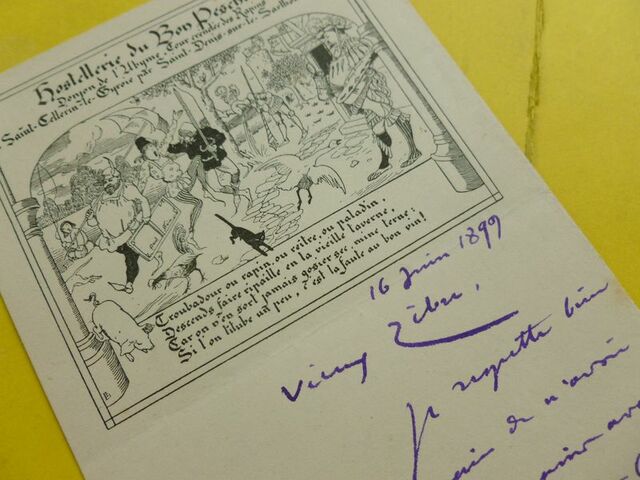 Hostellerie du Bon Pesche
Donjon de l'Abyme-Tour crenelée des Rapins
Saint-Cellerin-le-Gyrois par Saint-Denis-sur-Sarthon
Troubadour ou rapin, ou reitre, ou paladin,
Descends faire ripaille en la vieille taverne,
Car on n'en sort jamais gosier sec, mine terne:
Si l'on titube un peu, c'est la faute au bon vin!
16 Juin 1899
Vieux
Je regrette bien
de n'avoir